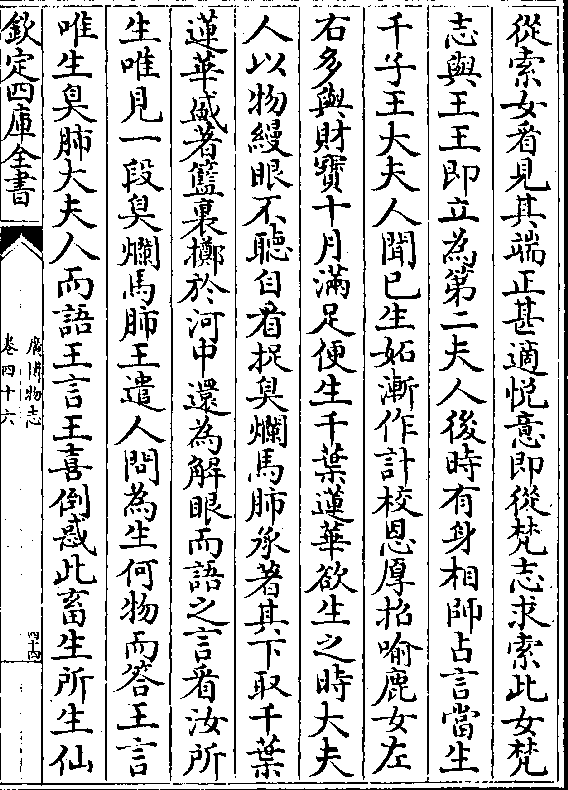 從索女看見其端正甚適悦意即從梵志求索此女梵
志與王王即立為第二夫人後時有身相師占言當生
千子王大夫人聞已生妬漸作計校恩厚招喻鹿女左
右多與財寳十月滿足便生千葉蓮華欲生之時大夫
人以物縵眼不聽自看捉臭爛馬肺承著其下取千葉
蓮華盛著籃裏擲於河中還為解眼而語之言看汝所
生唯見一段臭爛馬肺王遣人問為生何物而答王言
唯生臭肺大夫人而語王言王喜倒惑此畜生所生仙
欽定四庫全書
廣博物志
卷四十六
四十四